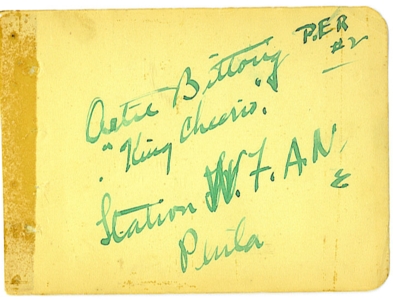 P.E.R
#2
Artie Bittong
"King Cheerio".
Station W.F.A.N.
Phila